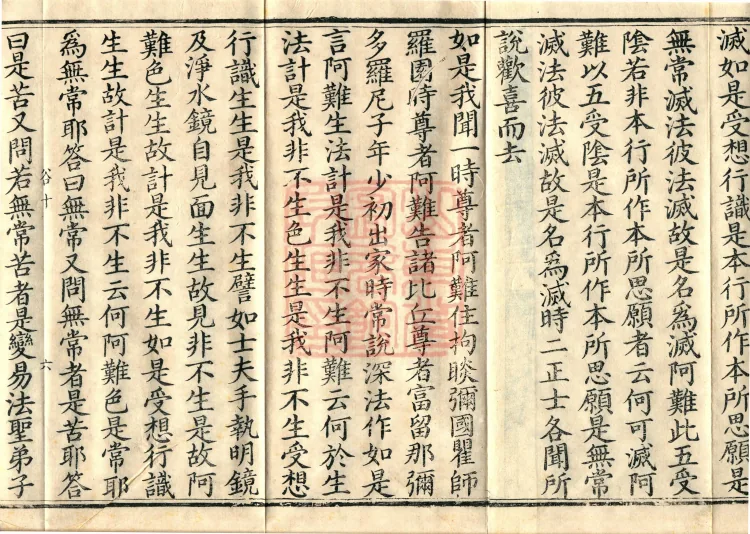 滅如是受想行識是本行所作本所思願是
無常滅法彼法滅故是名為滅阿難此五受
陰若非本行所作本所思願者云何可滅阿
難以五受陰是本行所作本所思願是無常
滅法彼法滅故是名爲滅時二正士各聞所
說歡喜而去
如是我聞一時尊者阿難住拘睒彌國瞿師
羅園時尊者阿難告諸比丘尊者富留那彌
多羅尼子年少初出家時常說深法作如是
言阿難生法計是我非不生阿難云何於生
法計是我非不生色生生是我非不生受想
行識生生是我非不生譬如士夫手執明鏡
及淨水鏡自見面生生故見非不生是故阿
難色生生故計是我非不生如是受想行識
生生故計是我非不生云何阿難色是常耶
為無常耶答曰無常又問無常者是苦耶答
谷十 六
曰是苦又問若無常苦者是變易法聖弟子